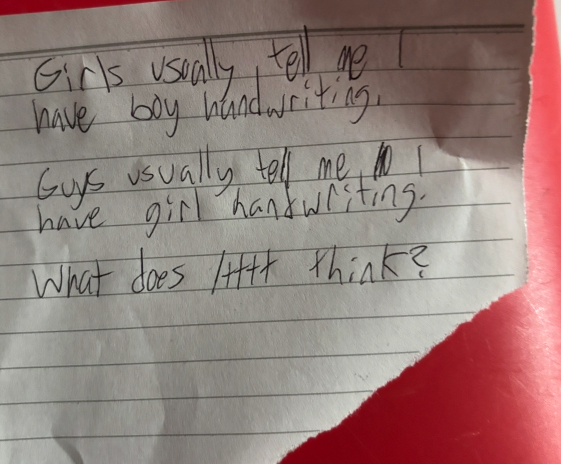 Girls usually tell me I
have boy handwriting.
Guys usually tell me I
have girl handwriting.
What does think?